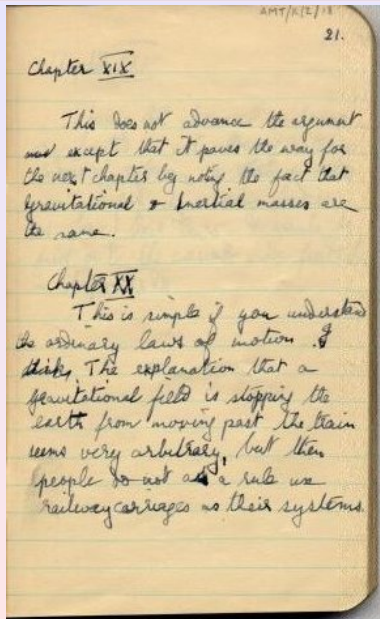 AMT/K/2/18
21.
Chapter XIX
This does not advance the argument
except that it paves the way for
the next chapter by noting the fact that
gravitational & Inertial masses are
the same.
Chapter XX
This is simple if you understand
the ordinary laws of motion. I
think The explanation that a
gravitational field is stopping the
earth from moving past the train
seems very arbitrary, but then
people do not as a rule use
railway carriages as their systems.